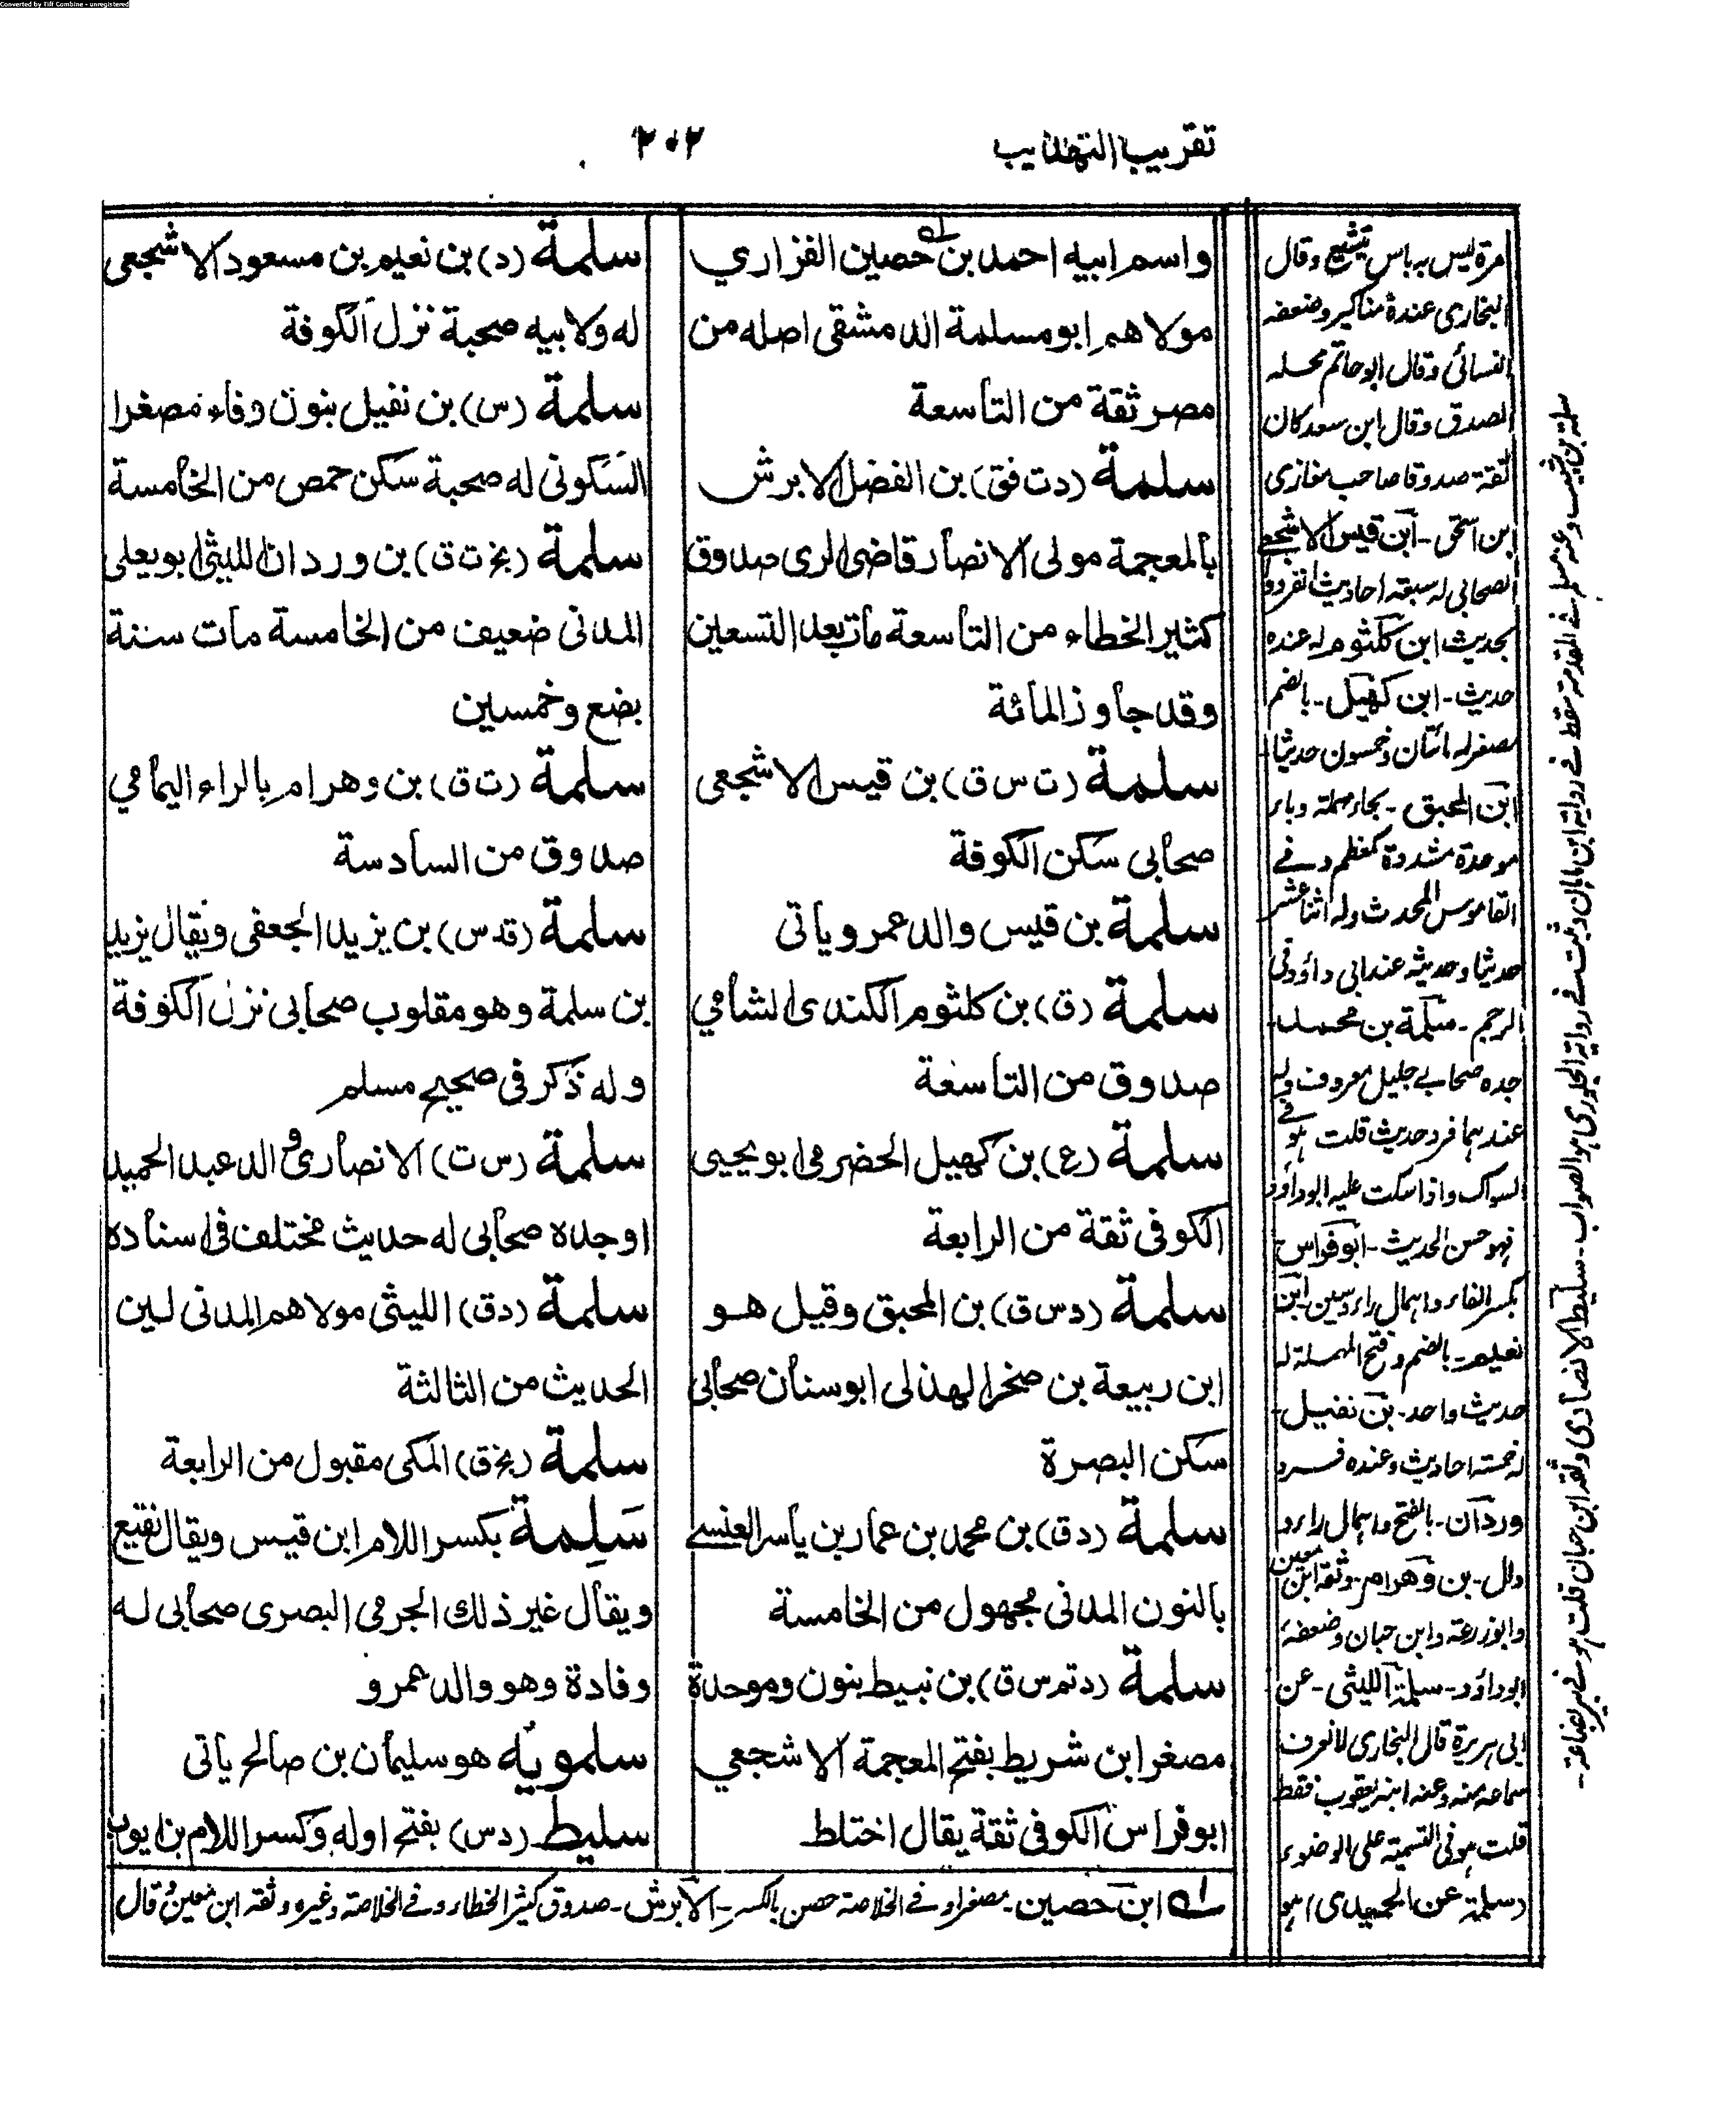 Converted by Tiff Combine - unregistered
تقريب التهذيب
٢٠٢
واسم ابيه احمد بن حصين الفزاري
مولاهم ابو مسلمة الدمشقى اصله من
مصر ثقة من التاسعة
سلمة (دت فق) بن الفضل الابرش
بالمعجمة مولى الانصار قاضى الرى صدوق
كثير الخطاء من التاسعة مات بعد التسعين
وقد جاوز المائة
سلمة (ت س ق) بن قيس الاشجعى
صحابى سكن الكوفة
سلمة بن قيس والد عمرو ياتى
سلمة (ق) بن كلثوم الكندى الشامي
صدوق من التاسعة
سلمة (ع) بن كهيل الحضرمى ابو يحيى
الكوفى ثقة من الرابعة
سلمة (د س ق) بن المحبق وقيل هو
ابن ربيعة بن صخر الهذلى ابو سنان صحابى
سكن البصرة
سلمة (د ق) بن محمد بن عمار بن ياسر العنسے
بالنون المدنى مجهول من الخامسة
سلمة (د تم س ق) بن نبيط بنون وموحدة
مصغر ابن شريط بفتح المعجمة الاشجعي
ابو فراس الكوفى ثقة يقال اختلط
سلمة (د) بن نعيم بن مسعود الاشجعى
له ولابيه صحبة نزل الكوفة
سلمة (س) بن نفيل بنون وفاء مصغرا
السكونى له صحبة سكن حمص من الخامسة
سلمة (بخ ت ق) بن وردان الليثى ابو يعلى
المدنى ضعيف من الخامسة مات سنة
بضع وخمسين
سلمة (ت ق) بن وهرام بالراء اليمامي
صدوق من السادسة
سلمة (قد س) بن يزيد الجعفى ويقال يزيد
بن سلمة وهو مقلوب صحابى نزل الكوفة
وله ذكر فى صحيح مسلم
سلمة (س ت) الانصارى والد عبد الحميد
او جده صحابى له حديث مختلف فى اسناده
سلمة (د ق) الليثى مولاهم المدنى لين
الحديث من الثالثة
سلمة (بخ ق) المكى مقبول من الرابعة
سَلِمة بكسر اللام ابن قيس ويقال نفيع
ويقال غير ذلك الجرمى البصرى صحابى له
وفادة وهو والد عمرو
سلمويه هو سليمان بن صالح ياتى
سليط (د س) بفتح اوله وكسر اللام بن ايوب
ابن حصين - مصغرا وفے الخلاصة حصن بالكسر - الابرش - صدوق كثير الخطاء وفے الخلاصة وغيره وثقه ابن معين وقال
مرة ليس به باس يتشيع وقال
البخارى عنده مناكير وضعفه
النسائى وقال ابو حاتم محله
الصدق وقال ابن سعد كان
ثقة صدوقا صاحب مغازى
ابن اسحق - ابن قيس الاشجعى
الصحابى له سبعة احاديث انفردوا
بحديث ابن كلثوم له عنده
حديث - ابن كهيل - بالضم
مصغر له مائتان وخمسون حديثا
ابن المحبق - بحاء مهملة وباء
موحدة مشددة كمعظم وفے
القاموس المحدث وله اثنا عشر
حديثا وحديثه عند ابى داؤد فى
الرجم - سلمة بن محمد
جده صحابے جليل معروف وله
عندهما فرد حديث قلت هو فے
السواك واذا سكت عليه ابو داؤد
فهو حسن الحديث - ابو فراس
بكسر الفاء واهمال راء وسين - ابن
نعيم - بالضم وفتح المهملة له
حديث واحد - بن نفيل
له خمسة احاديث وعنده فرد
وردان - بالفتح واهمال راء و
دال - بن وهرام - وثقه ابن معين
وابو زرعة وابن حبان وضعفه
ابو داؤد - سلمة الليثى - عن
ابى هريرة قال البخارى لا نعرف
سماعه منه وعنه ابنه يعقوب فقط
قلت هو فى التسمية على الوضوء
(سلمة عن الحميدى) هو
سلمة بن شبيب وعنه مسلم فے المقدمة سقط فے رواية ابن ماهان وثبت فے رواية الجلودى هو الصواب - سليط الانصارى وثقه ابن حبان قلت هو فے بير بضاعة -